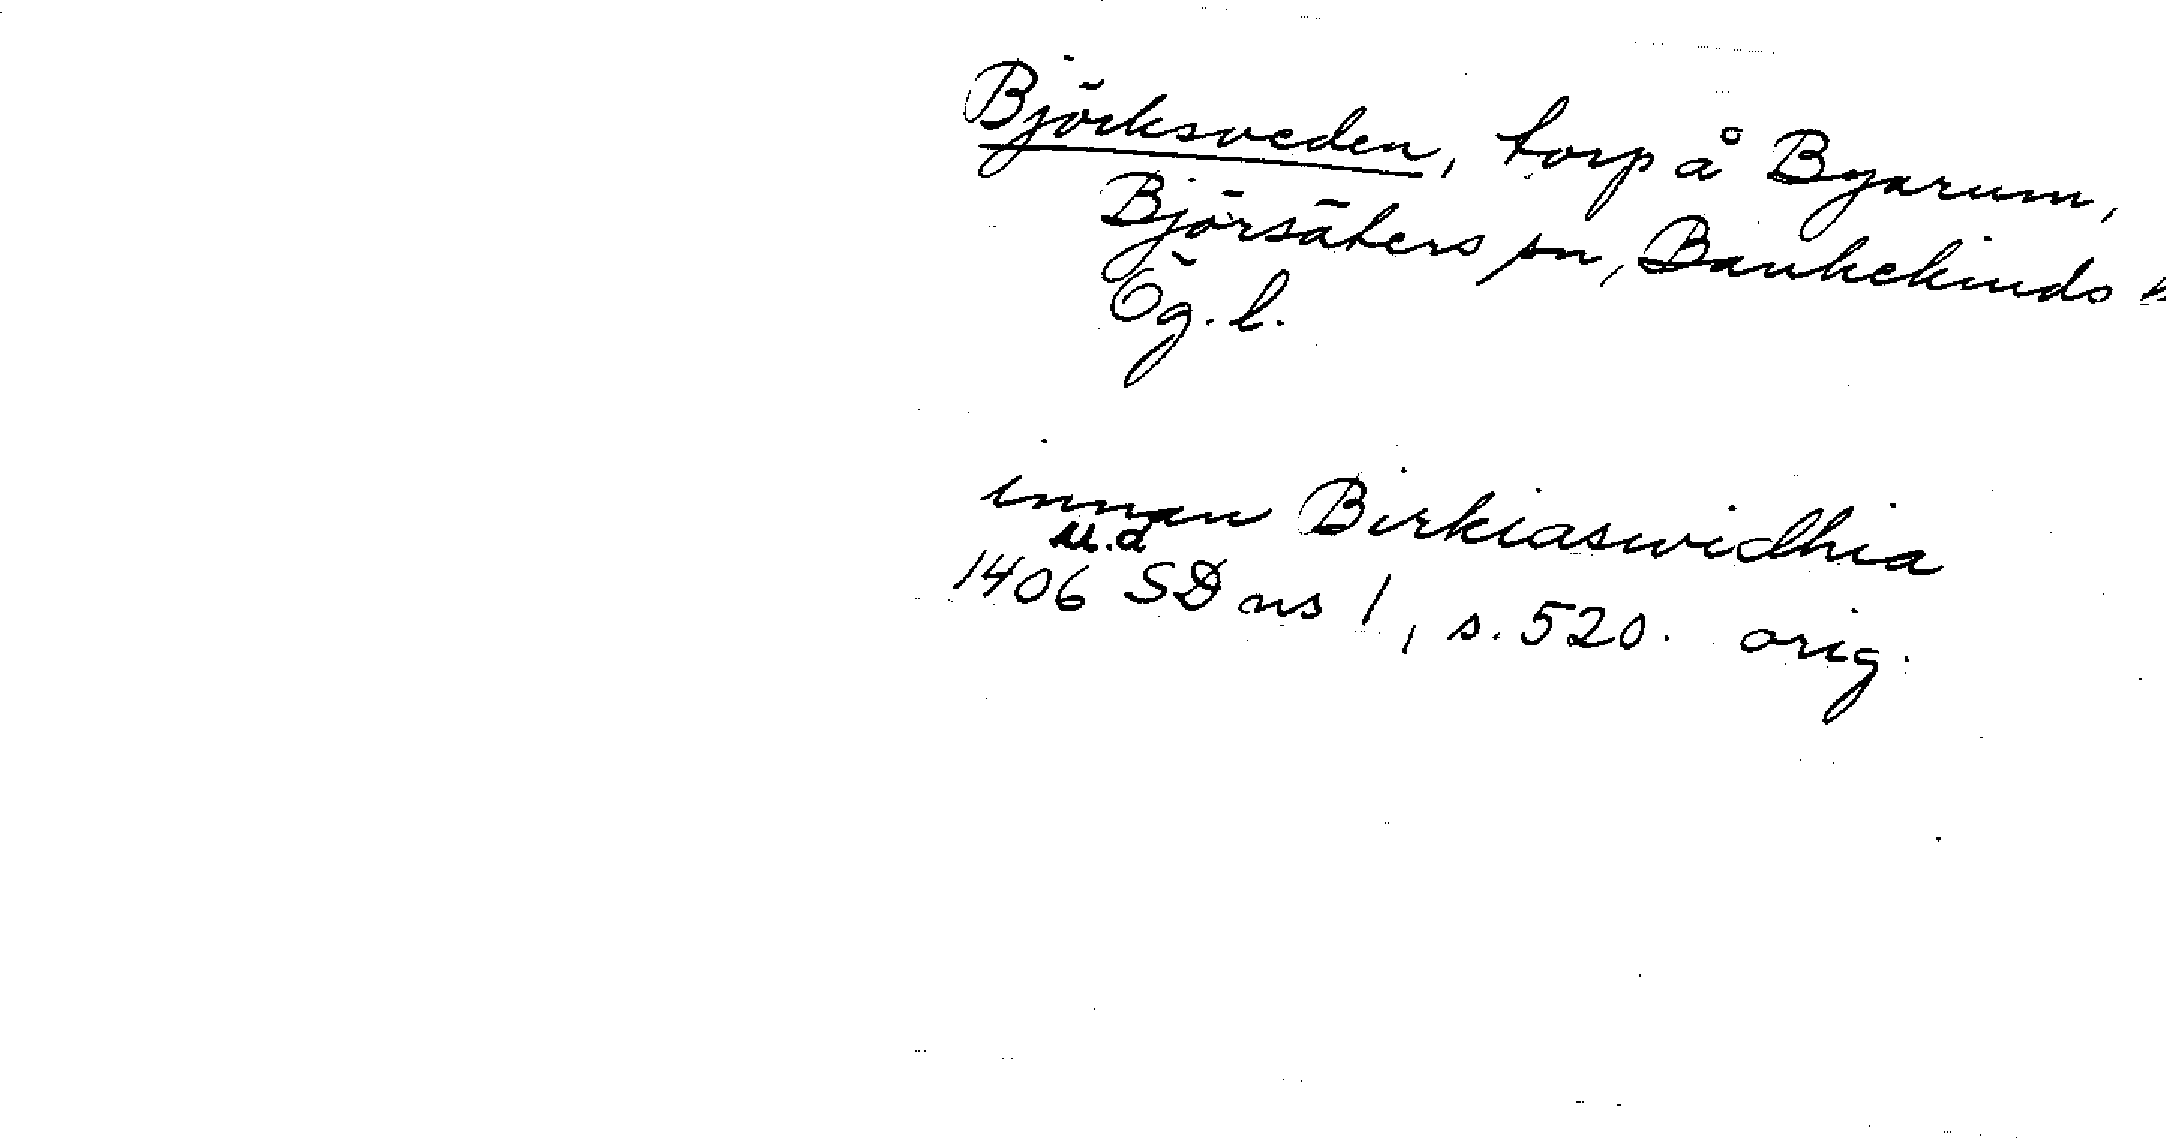 Björksveden, torp å Byarum,
Björsäters sn, Bankekinds h
Ög. l.
innan Birkiaswidhia
u.d.
1406 SD ns 1, s. 520. orig.